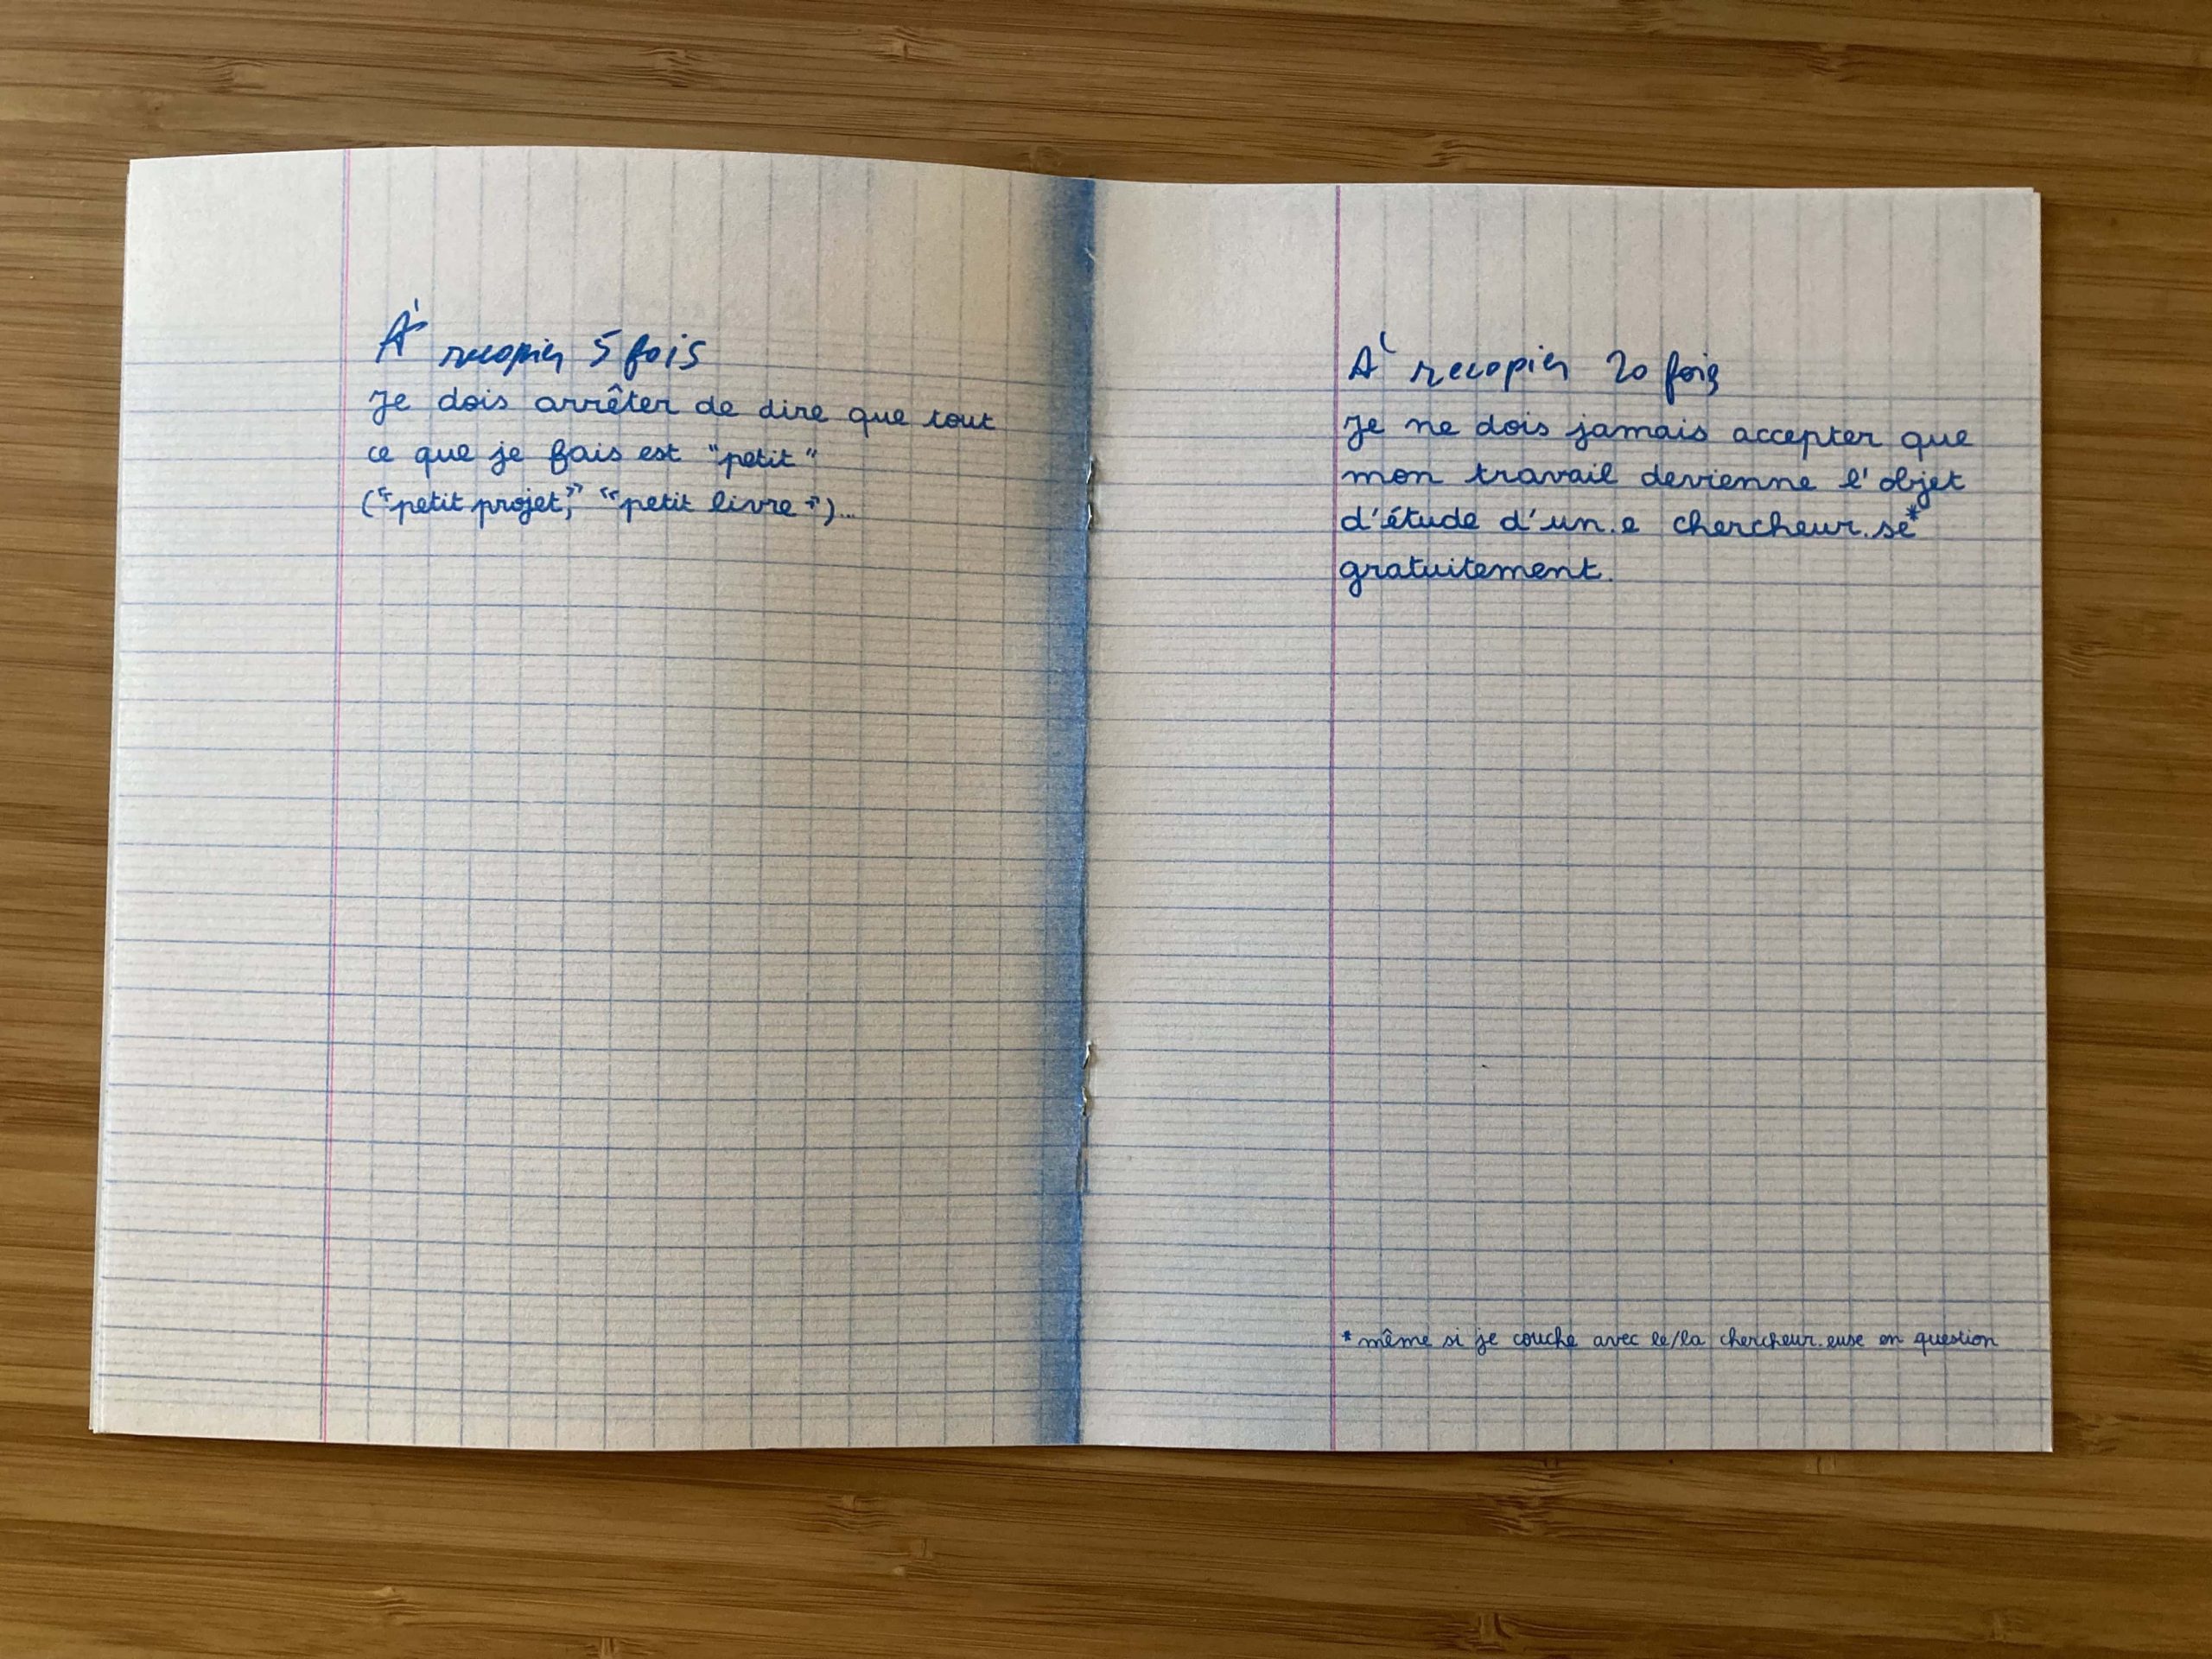 À recopier 5 fois
Je dois arrêter de dire que tout
ce que je fais est "petit"
("petit projet," "petit livre")...
À recopier 20 fois
Je ne dois jamais accepter que
mon travail devienne l'objet
d'étude d'un.e chercheur.se*
gratuitement.
* même si je couche avec le/la chercheur.euse en question